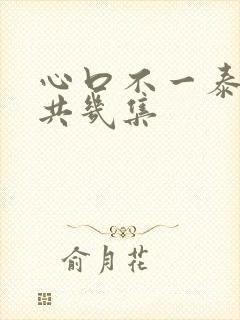 心口不一泰
共几集
俞月花